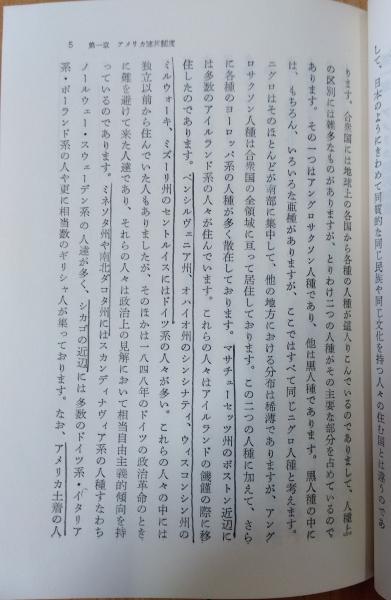 して、日本のようにきわめて同質的な同じ民族や同じ文化を持つ人々の住む国とは違うでも
ります。合衆国には地球上の各国から各種の人種が這入りこんでいるのでありまして、人種上
の区別には雑多なものがありますが、とりわけ二つの人種がその主要な部分を占めているので
あります。その一つはアングロサクソン人種であり、他は黒人種であります。黒人種の中に
は、もちろん、いろいろな亜種がありますが、ここではすべて同じニグロ人種と考えます。
ニグロはそのほとんどが南部に集中して、他の地方における分布は稀薄でありますが、アング
ロサクソン人種は合衆国の全領域に亘って居住しております。この二つの人種に加えて、さら
に各種のヨーロッパ系の人種が多く散在しております。マサチューセッツ州のボストン近辺に
は多数のアイルランド系の人々が住んでいます。これらの人々はアイルランドの饑饉の際に移
住したのであります。ペンシルヴェニア州、オハイオ州のシンシナティ、ウィスコンシン州の
ミルウォーキ、ミズーリ州のセントルイスにはドイツ系の人々が多い。これらの人々の中には
独立以前から住んでいた人もありましたが、そのほかは一八四八年のドイツの政治革命のとき
に難を避けて来た人達であり、それらの人々は政治上の見解において相当自由主義的傾向を持
っているのであります。ミネソタ州や南北ダコタ州にはスカンディナヴィア系の人種すなわち
ノールウェー・スウェーデン系の人達が多く、シカゴの近辺には多数のドイツ系・イタリア
系・ポーランド系の人や更に相当数のギリシャ人が集っております。なお、アメリカ土着の人
5 第一章 アメリカ連邦制度